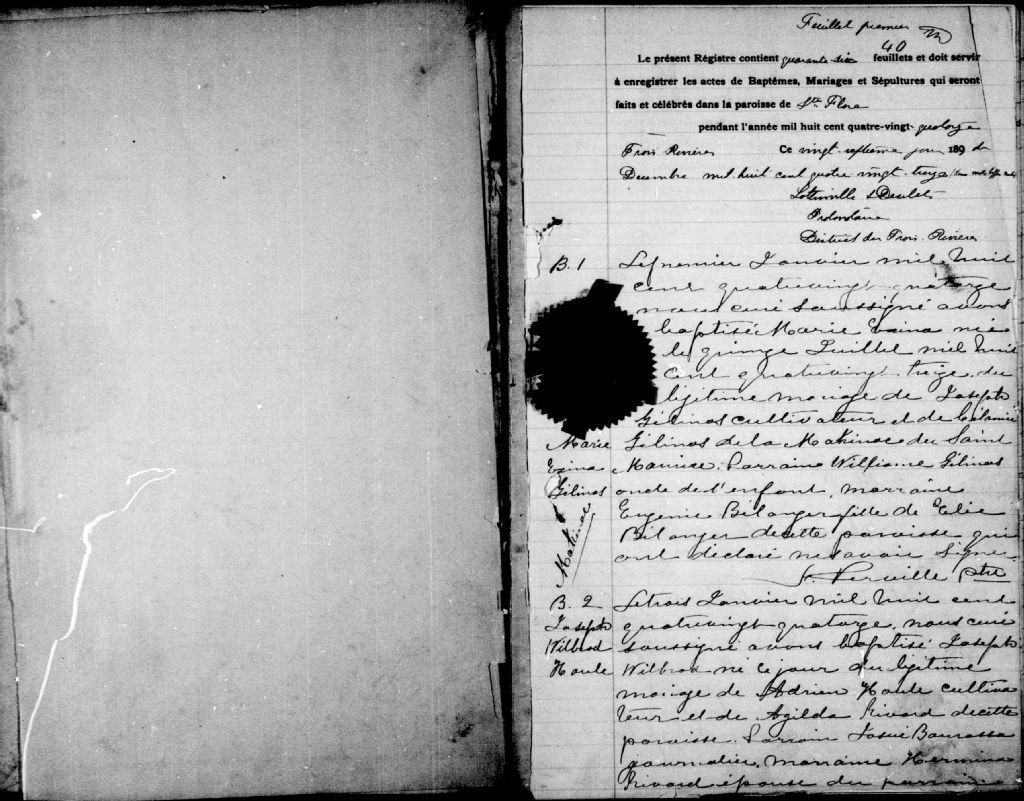 Feuillet premier
40
Le présent Régistre contient quarante-six feuillets et doit servir
à enregistrer les actes de Baptêmes, Mariages et Sépultures qui seront
faits et célébrés dans la paroisse de Ste Flore
pendant l'année mil huit cent quatre-vingt-quatorze
Trois Rivières Ce vingt septième jour 189 de
Decembre mil huit cent quatre vingt-treize
Lottinville & Desilets
Protonotaire
District des Trois-Rivières
B. 1 Le premier Janvier mil huit
cent quatrevingt quatorze
nous curé soussigné avons
baptisé Marie Exina née
le quinze Juillet mil huit
cent quatrevingt-treize, du
légitime mariage de Joseph
Gélinas cultivateur et de
Marie Gélinas de la Makinac du Saint
Exina Maurice. Parrain William Gélinas
Gélinas oncle de l'enfant, marraine
Eugenie Bélanger fille de Elie
Makinac Bélanger de cette paroisse qui
ont déclaré ne savoir signer
Verville Ptre
B. 2 Le trois Janvier mil huit cent
Joseph quatrevingt-quatorze, nous curé
Wilbrod soussigné avons baptisé Joseph
Houle Wilbrod né ce jour du légitime
mariage de Adrien Houle cultiva
teur et de Agilda Rivard de cette
paroisse. Parrain Josué Bourassa
journalier, marraine Hermina
Rivard épouse du parrain